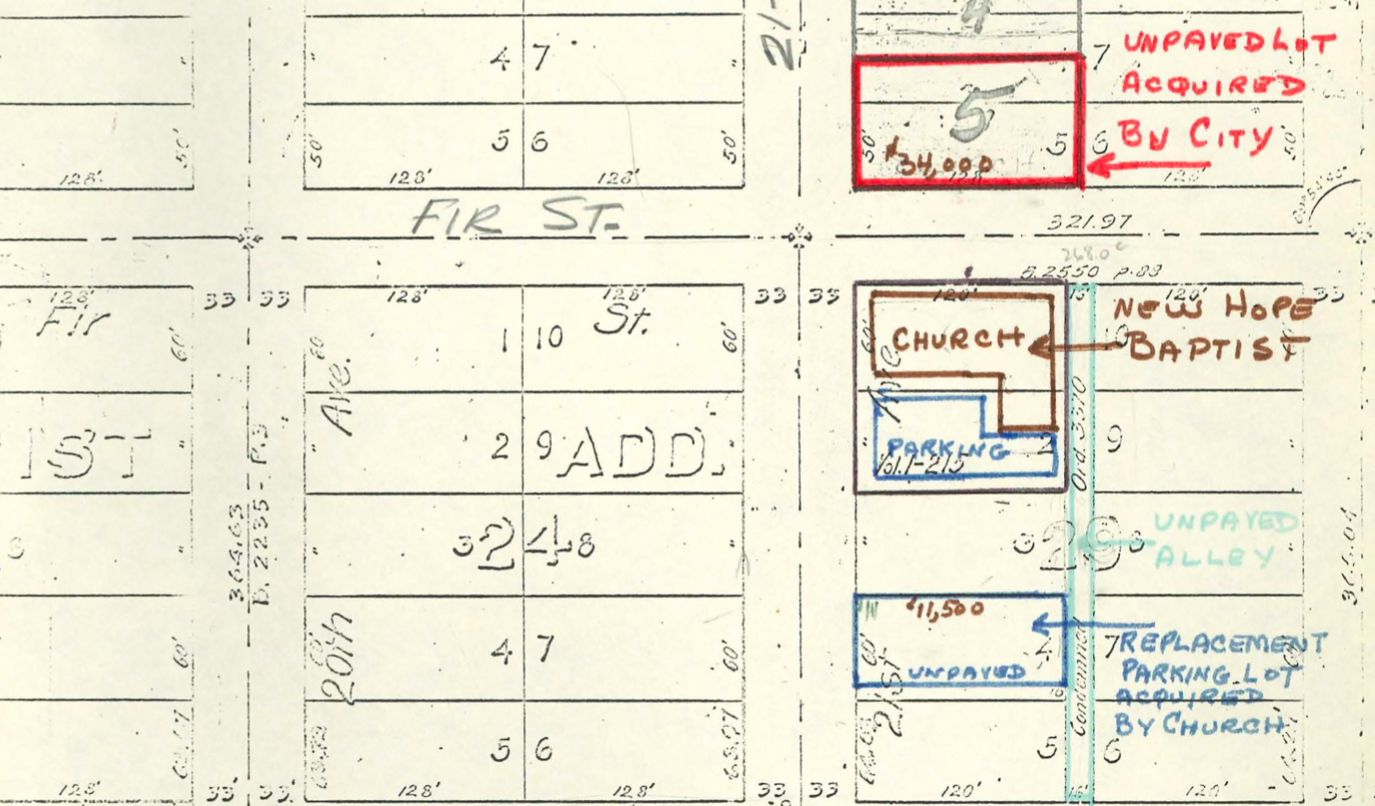 4
21-
4 7
"
"
"
7
UNPAVED LOT
ACQUIRED
BY CITY
5
50'
5 6
50'
50'
128'
128'
128'
50'
$34,000
5 6
50'
128'
FIR ST.
321.97
268.0
B. 2550 P.83
128'
33 33
128'
128'
33 33
120'
16'
120'
33
Fir
60'
60
1 10
St.
60'
60'
CHURCH
NEW HOPE
BAPTIST
Ave.
Ave
IST
"
"
2 9
ADD.
"
"
PARKING
Vol.1-215
2
Ord. 3370
9
"
364.63
B. 2235 - P.3
"
"
3 24 8
"
"
3 28 8
"
UNPAVED
ALLEY
364.04
$11,500
60'
20th
4 7
60'
60'
21st
UNPAVED
4
Condemned
7
REPLACEMENT
PARKING LOT
ACQUIRED
BY CHURCH
5 6
63.07
5
6
128'
33 33
128'
128'
33 33
120'
16'
120'
33